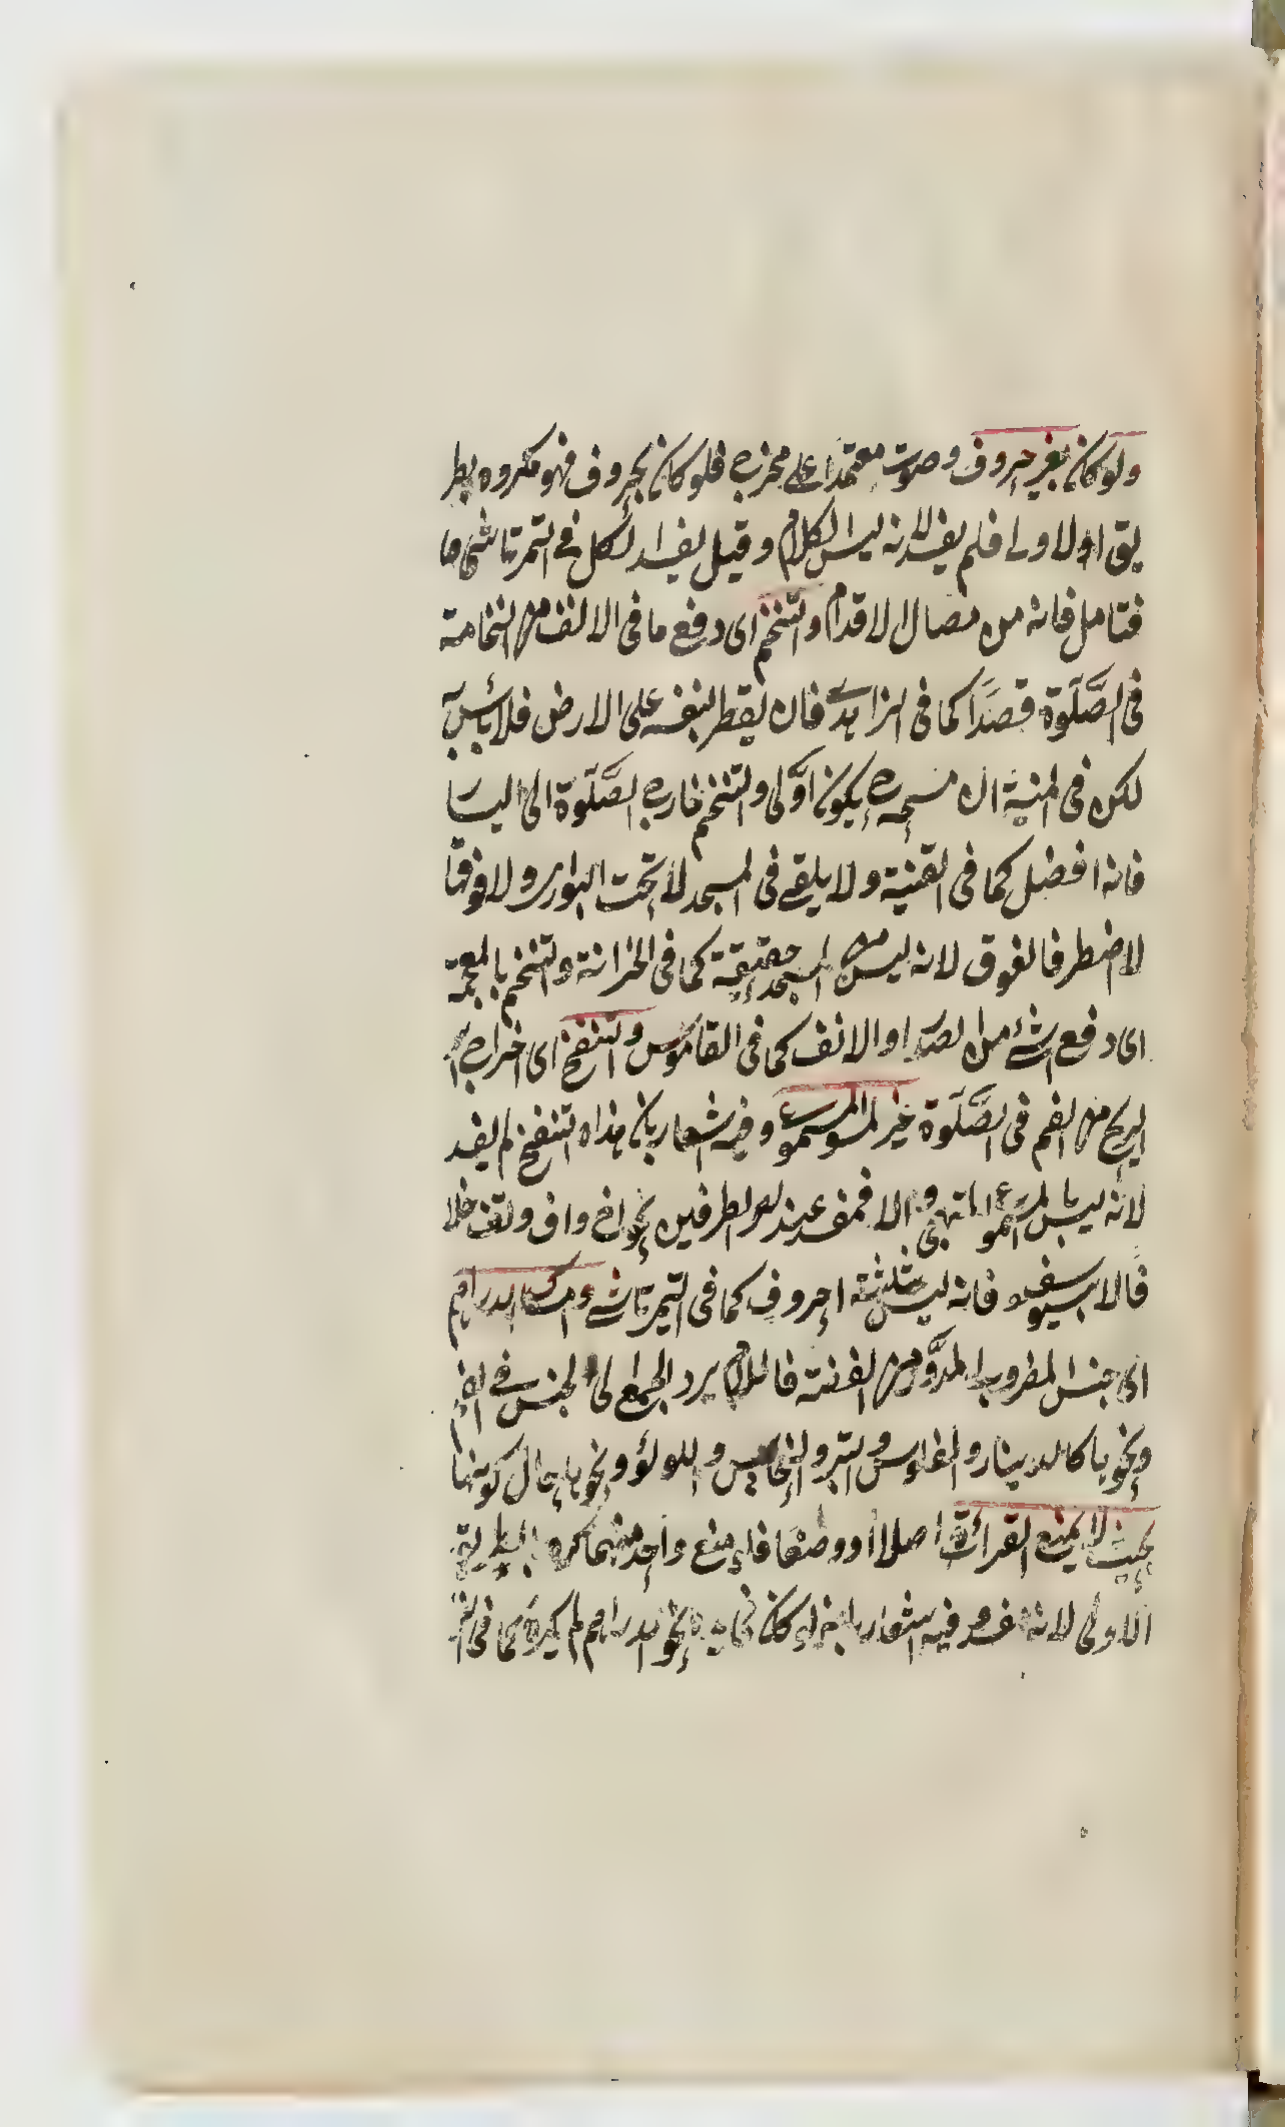 ولو كان بغير حروف وصوت معتمدا على مخرج فلو كان بحروف فهو مكروه بطر
يق اولاولى فلم يفسد لانه ليس الكلام وقيل يفسد الكل في التمرتاشي ها
فتامل فانه من مضال الاقدام والتنخم اى دفع ما فى الانف من النخامة
فى الصلوة قصدا كما فى الزاهدى فان يقطر بنفسه على الارض فلا بأس به
لكن فى المنية ان مسحه يكون اولى والتنخم خارج الصلوة الى اليسا
فانه افضل كما فى القنية ولا يلقى فى المسجد لا تحت البوارى ولا فوقها
لاضطر فالفوق لانه ليس من المسجد حقيقة كما فى الخزانة والتنخم بالمعجمة
اى دفع الشئ من الصدر او الانف كما فى القاموس والتنفخ اى اخراج ا
الريح من الفم فى الصلوة غير المسموع وفيه اشعار بان هذا التنفخ لم يفسد
لانه ليس بالمسموع المتهجى والا فمفسد عند الطرفين نحو اخ واف وتف خلا
فا لابى يوسف فانه ليس ثلثة احروف كما فى التمرتاشى وامساك الدراهم
اى جنس المضروب المدور من الفضة فاللام يرد الجمع الى الجنس في الفم
ونحوها كالدينار والفلوس والتبر والنحاس واللولؤ ونحوها حال كونها
بحيث لا يمنع القرائة اصلا او وصفا فان منع واحد منهما كره بالطريق
الاولى لانه مفسد وفيه اشعار بانه لو كان فى يده نحو الدراهم لم يكره كما فى